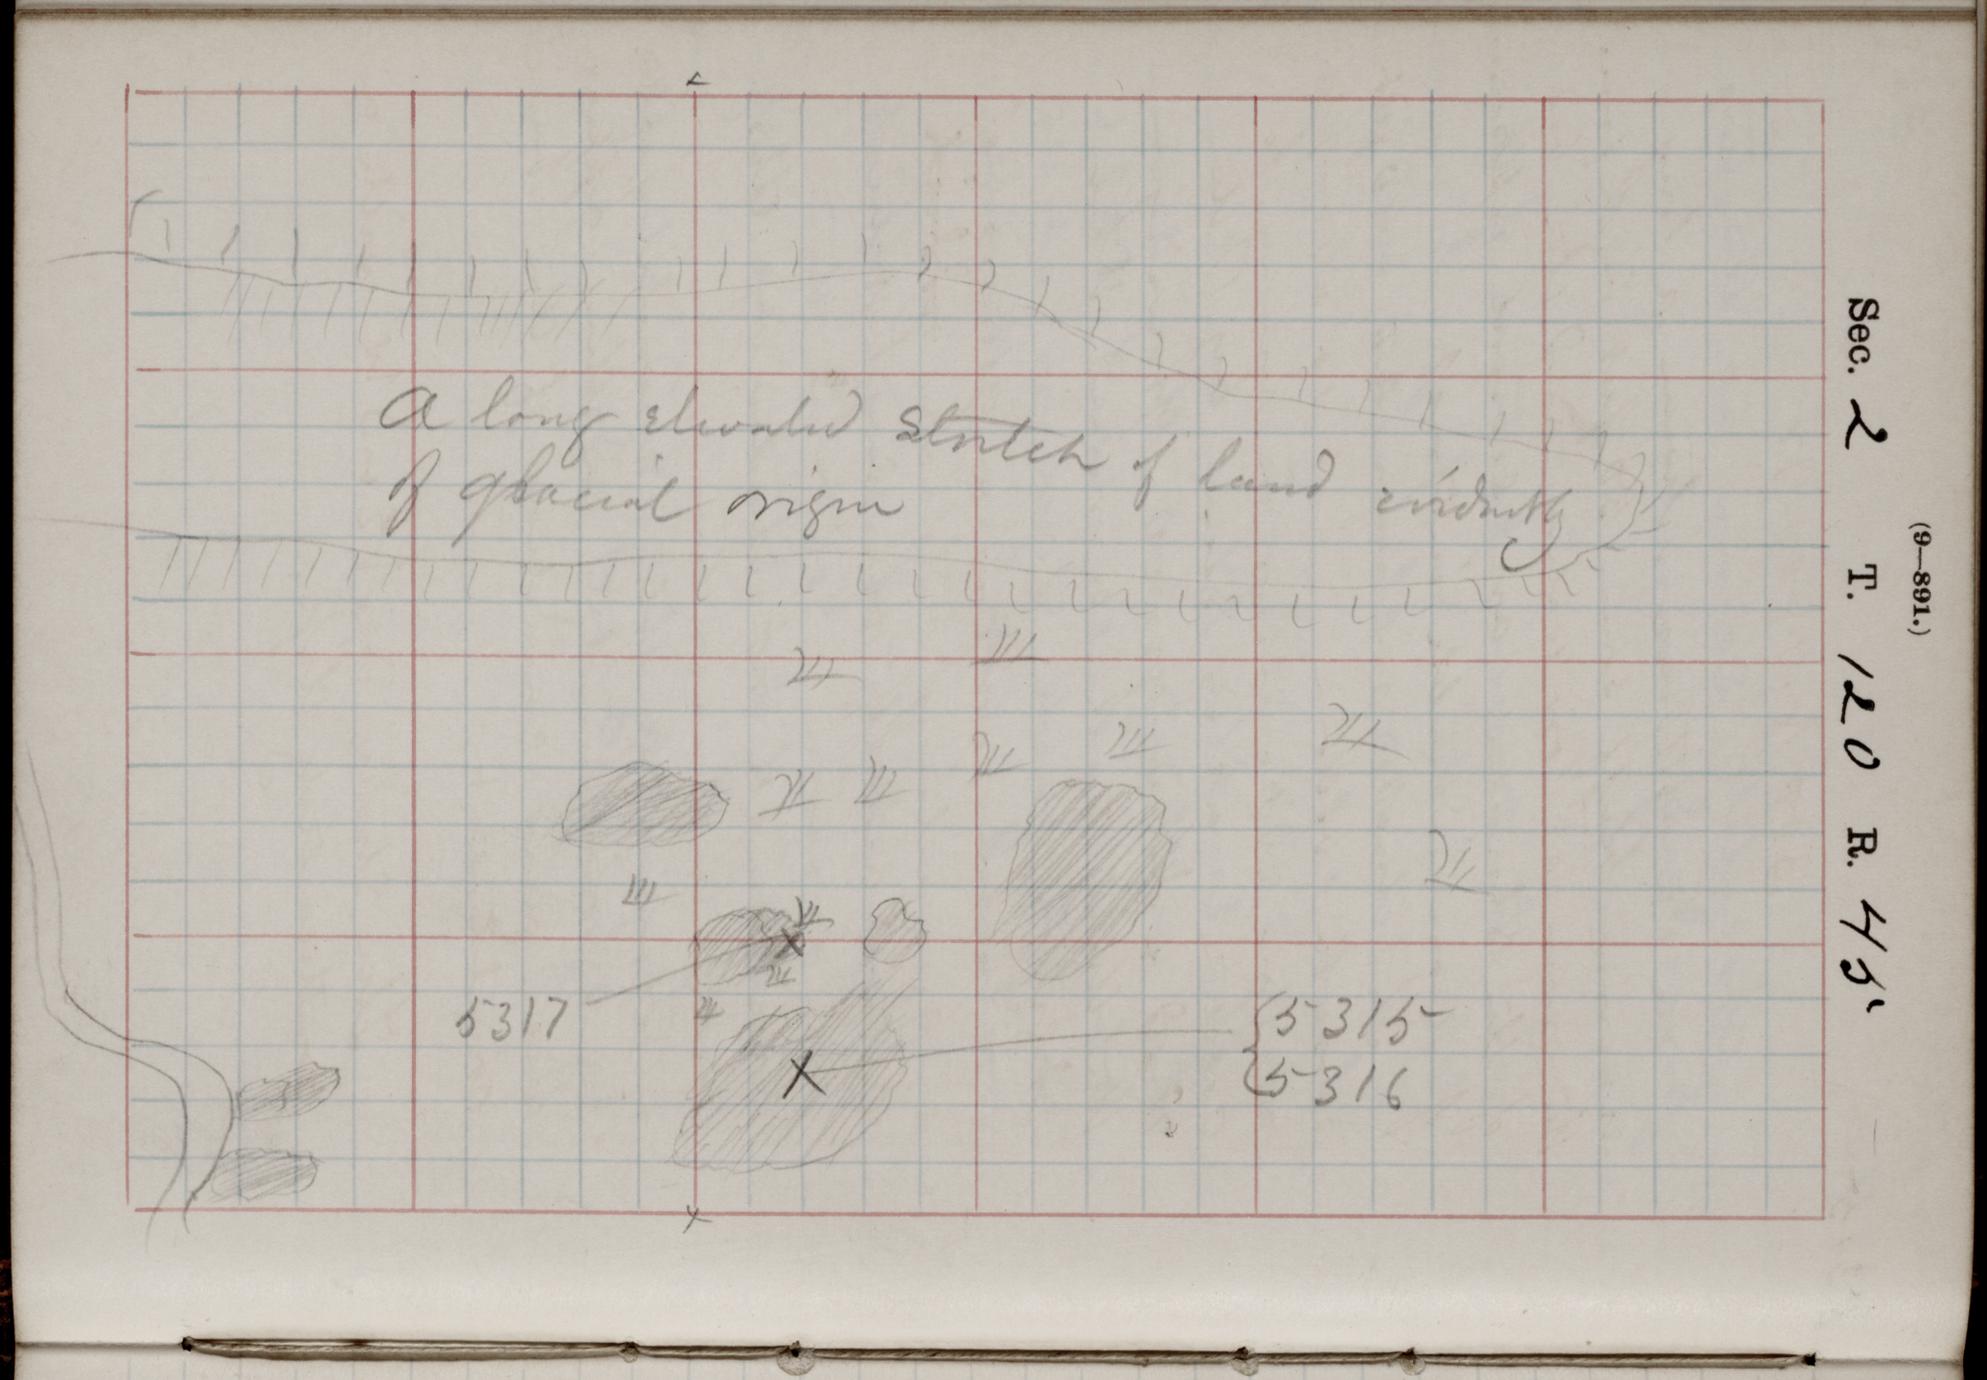 A long elevated stretch of land evidently
of glacial origin
5317
5315
5316
Sec. 2 T. 120 R. 45
(9—891.)